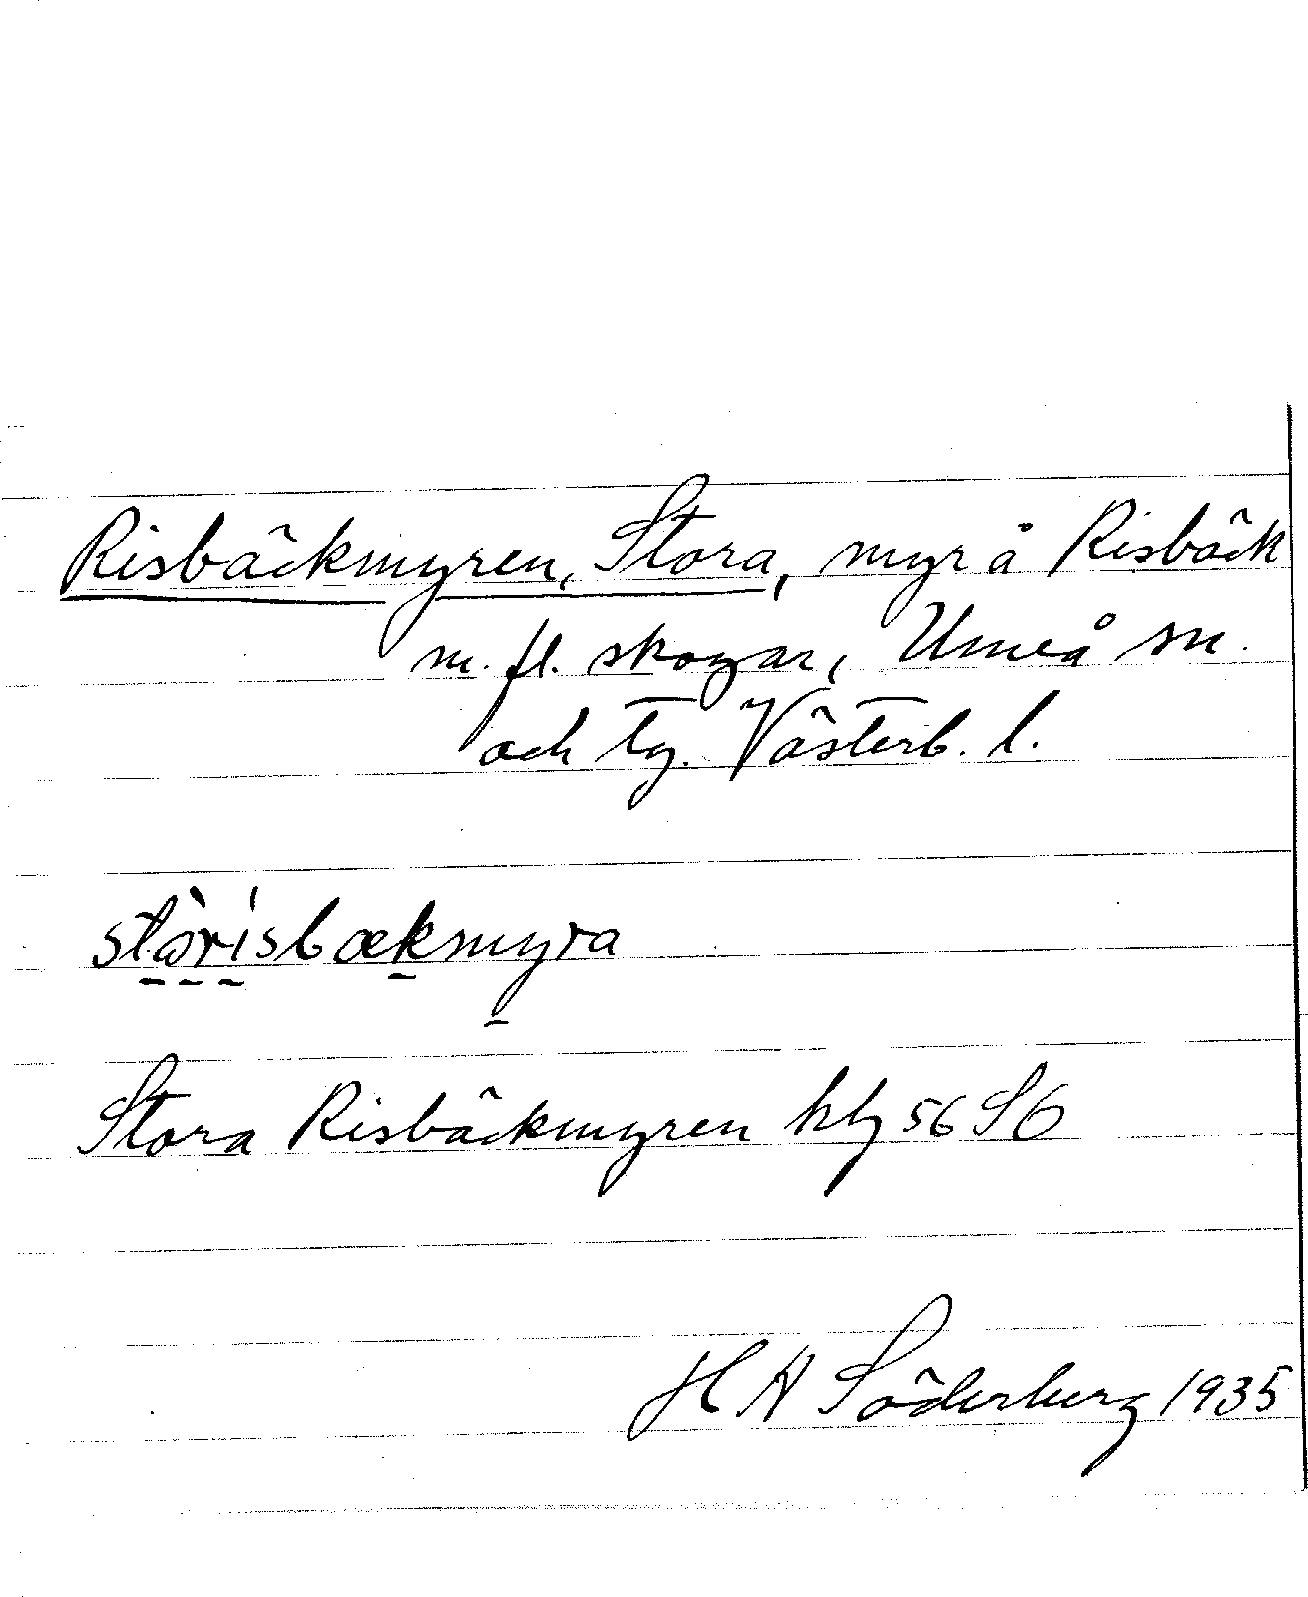 Risbäckmyren, Stora, myr å Risbäck
m. fl. skogar, Umeå sn.
och tg. Västerb. l.
Stora Risbäckmyren hbl 56 S6
H A Söderberg 1935